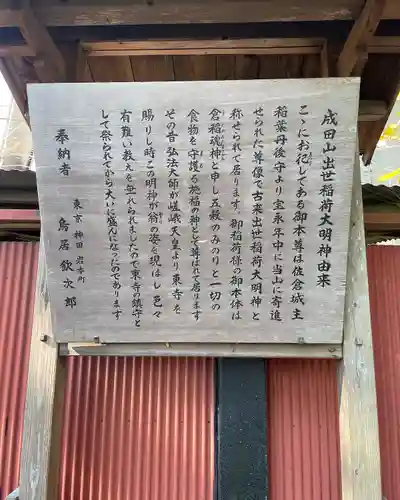 成田山出世稲荷大明神由来
こゝにお祀してある御本尊は佐倉城主
稲葉丹後守より宝永年中に当山に寄進
せられた尊像で古来出世稲荷大明神と
称せられて居ります。御稲荷様の御本体は
倉稲魂神と申し五穀のみのりと一切の
食物を守護る施福の神として尊ばれて居ります
その昔弘法大師が嵯峨天皇より東寺を
賜りし時この明神が翁の姿を現はし色々
有難い教えを垂れられましたので東寺の鎮守と
して祭られてから大いに盛んになったのであります
奉納者
東京 神田 岩本町
鳥居欽次郎